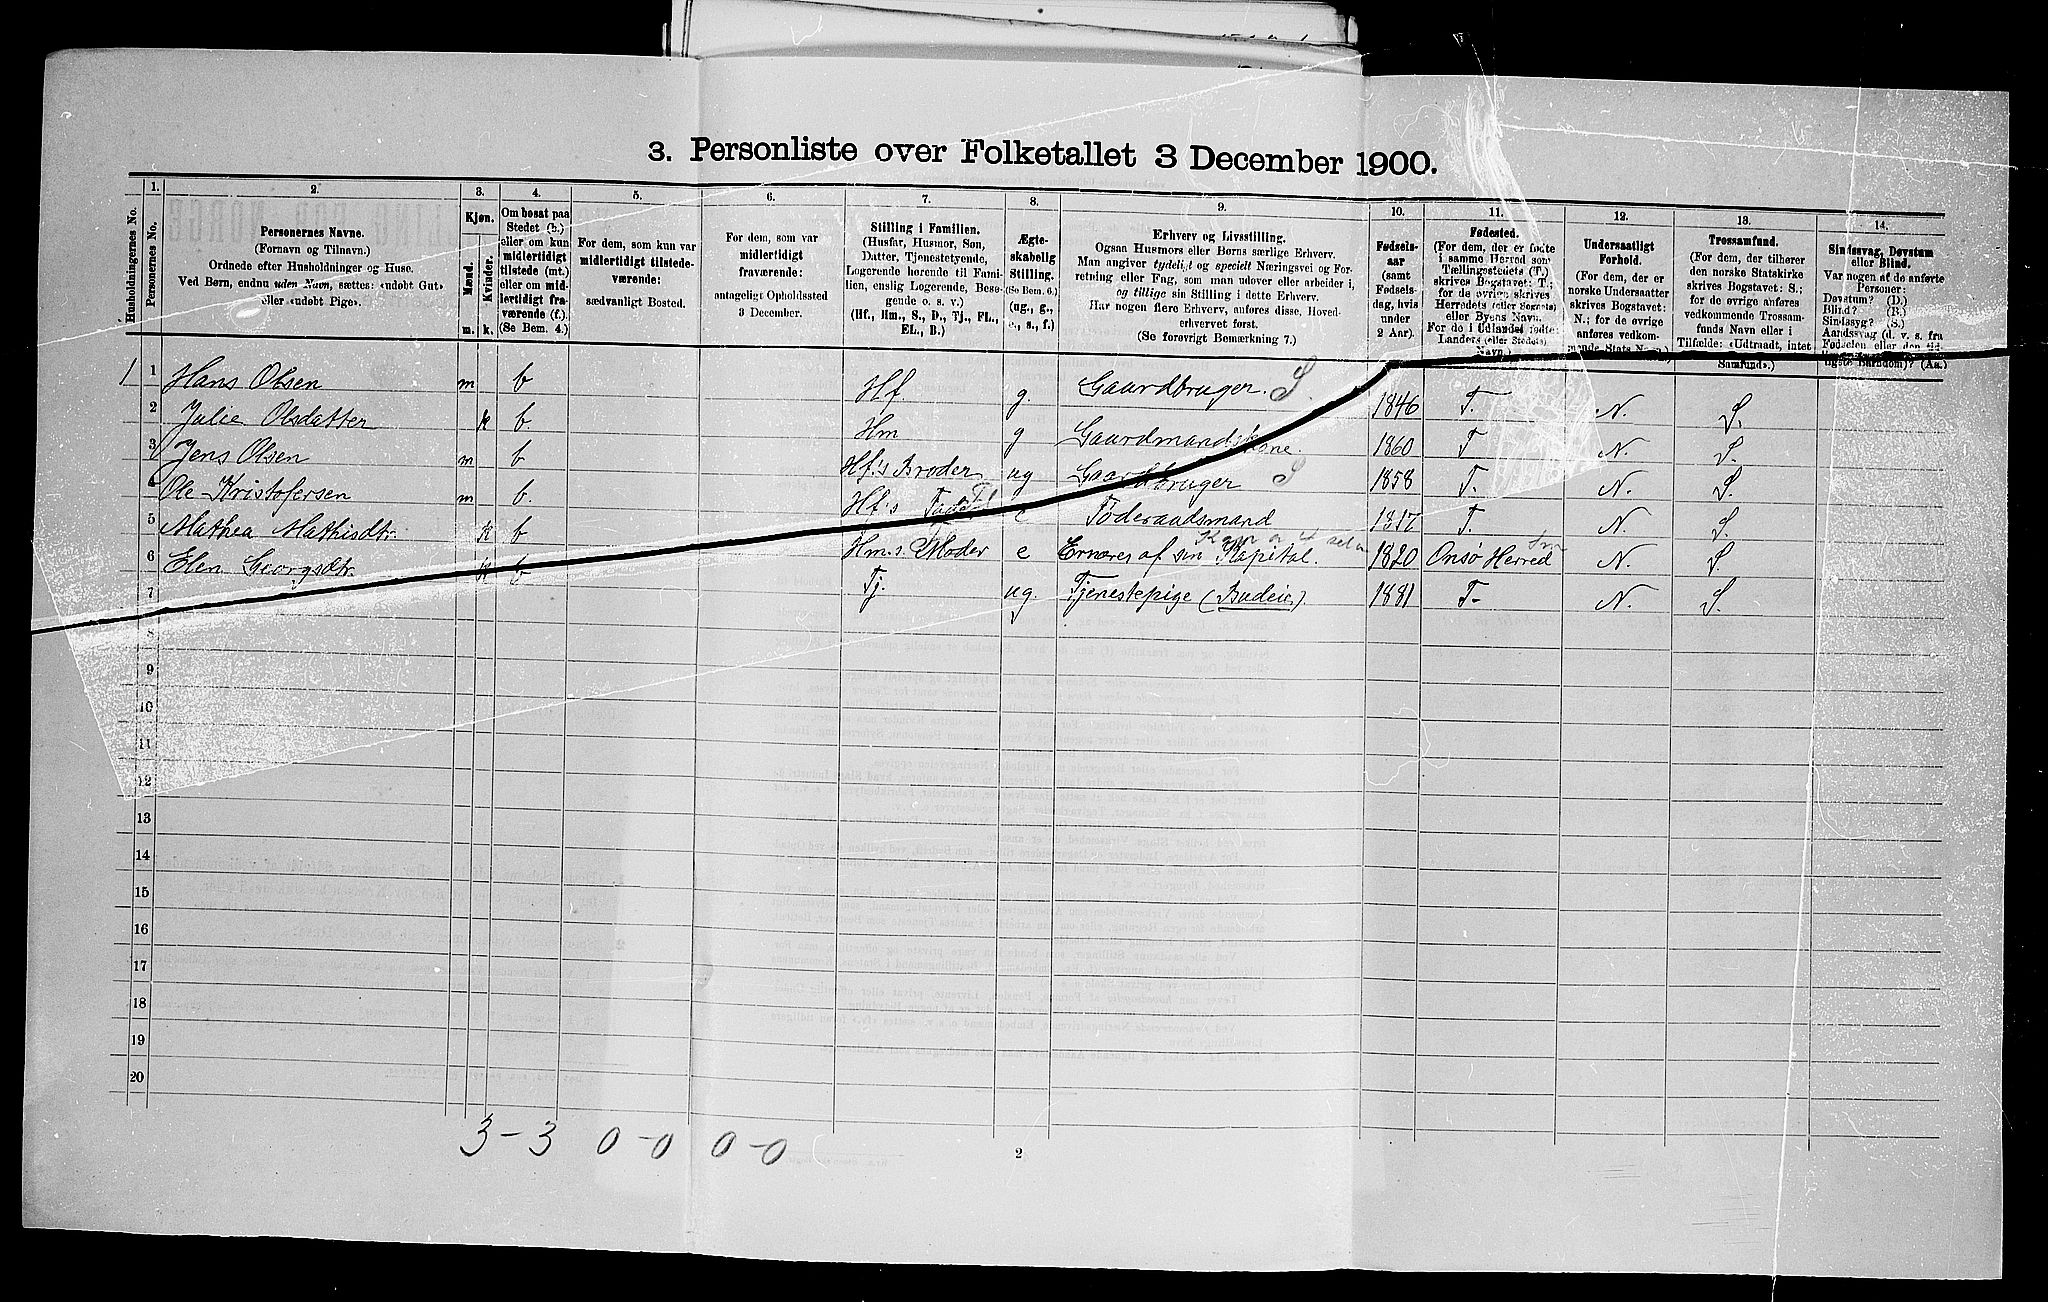 3. Personliste over Folketallet 3 December 1900.
1. 2. 3. 4. 5. 6. 7. 8. 9. 10. 11. 12. 13. 14.
Husholdningernes No.
Personernes No.
Personernes Navne.
(Fornavn og Tilnavn.)
Ordnede efter Husholdninger og Huse.
Ved Børn, endnu uden Navn, sættes: «udøbt Gut»
eller «udøbt Pige».
Kjøn.
Mænd.
Kvinder.
m. k.
Om bosat paa
Stedet (b.)
eller om kun
midlertidigt
tilstede (mt.)
eller om mid-
lertidigt fra-
værende (f.).
(Se Bem. 4.)
For dem, som kun var
midlertidigt tilstede-
værende:
sædvanligt Bosted.
For dem, som var
midlertidigt
fraværende:
antageligt Opholdssted
3 December.
Stilling i Familien.
(Husfar, Husmor, Søn,
Datter, Tjenestetyende,
Logerende hørende til Fami-
lien, enslig Logerende, Besø-
gende o. s. v.)
(Hf., Hm., S., D., Tj., FL.,
EL., B.)
Ægte-
skabelig
Stilling.
(Se Bem. 6.)
(ug., g.,
e., s., f.)
Erhverv og Livsstilling.
Ogsaa Husmors eller Børns særlige Erhverv.
Man angiver tydeligt og specielt Næringsvei og For-
retning eller Fag, som man udøver eller arbeider i,
og tillige sin Stilling i dette Erhverv.
Har nogen flere Erhverv, anføres disse, Hoved-
erhvervet først.
(Se forøvrigt Bemærkning 7.)
Fødsels-
aar
(samt
Fødsels-
dag, hvis
under
2 Aar).
Fødested.
(For dem, der er fødte
i samme Herred som
Tællingsstedets (T.)
skrives Bogstavet: T.;
for de øvrige skrives
Herredets (eller Sognets)
eller Byens Navn.
For de i Udlandet fødte:
Landets (eller Stedets)
Navn.)
Undersaatligt
Forhold.
(For dem, der er
norske Undersaatter
skrives Bogstavet:
N.; for de øvrige
anføres vedkom-
mende Stats Navn.)
Trossamfund.
(For dem, der tilhører
den norske Statskirke
skrives Bogstavet: S.;
for de øvrige anføres
vedkommende Trossam-
funds Navn eller i
Tilfælde: «Udtraadt, intet
Samfund».)
Sindssvag, Døvstum
eller Blind.
Var nogen af de anførte
Personer:
Døvstum? (D.)
Blind? (B.)
Sindssyg? (S.)
Aandssvag (d. v. s. fra
Fødselen eller den tid-
ligste Barndom)? (Aa.)
1 1 Hans Olsen m b Hf g. Gaardbruger. S. 1846 T. N. S.
2 Julie Olsdatter k b. Hm g Gaardmandskone. 1860 T N. S.
3 Jens Olsen m b Hf's Broder ug Gaardbruger S 1858 T. N. S.
4 Ole Kristofersen m b. Hf's e Føderaadsmand 1817 T. N. S.
5 Mathea Mathisdtr. k b Hm.s Moder e Ernæres af sin Kapital. 1820 Onsø Herred N. S
6 Elen Georgsdtr. k b Tj. ug. Tjenestepige (Budeie). 1881 T- N. S.
7
8
9
10
11
12
13
14
15
16
17
18
19
20
3-3 0-0 0-0
2